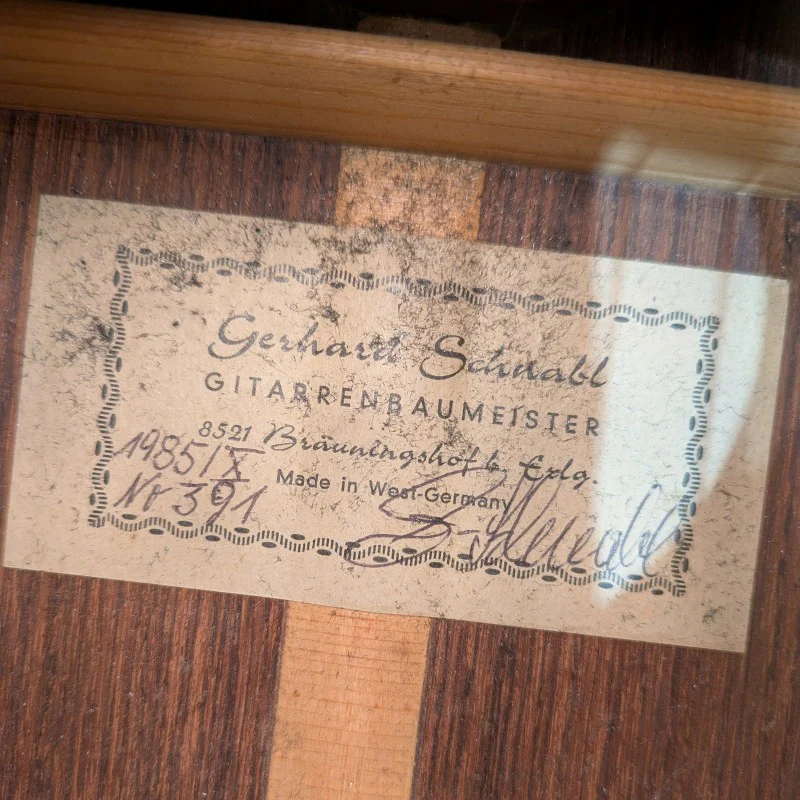 Gerhard Schnabl
GITARRENBAUMEISTER
8521 Bräuningshof b. Erlg.
1985/X
Made in West-Germany
No 391
G. Schnabl